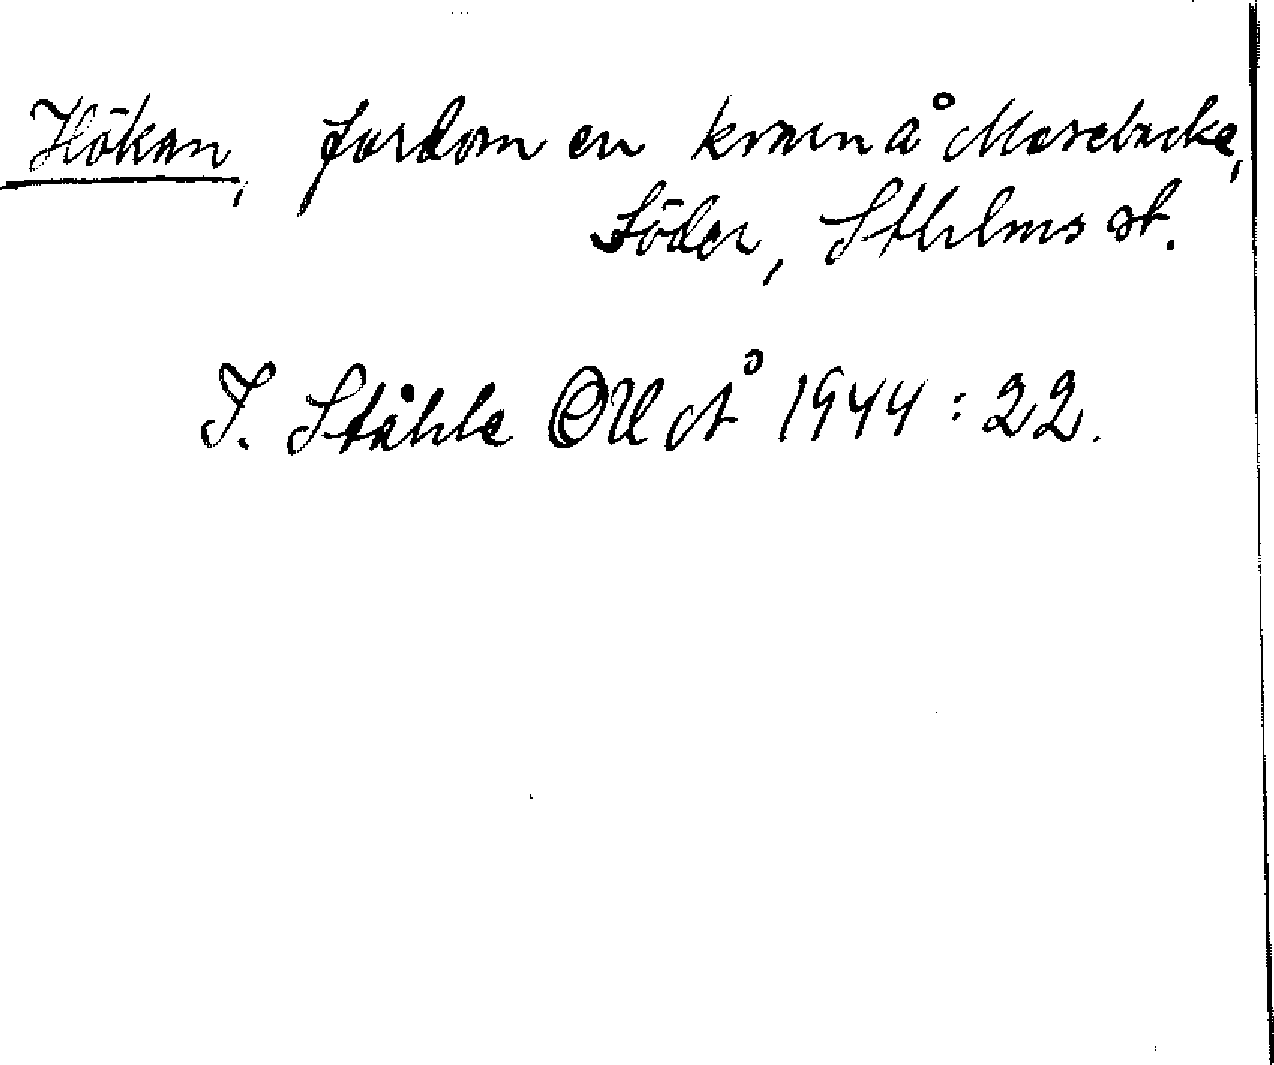 Hökan, fordom en kvarn å Mosebacke,
Söder, Sthlms st.
I. Ståhle OUÅ 1944 : 22.